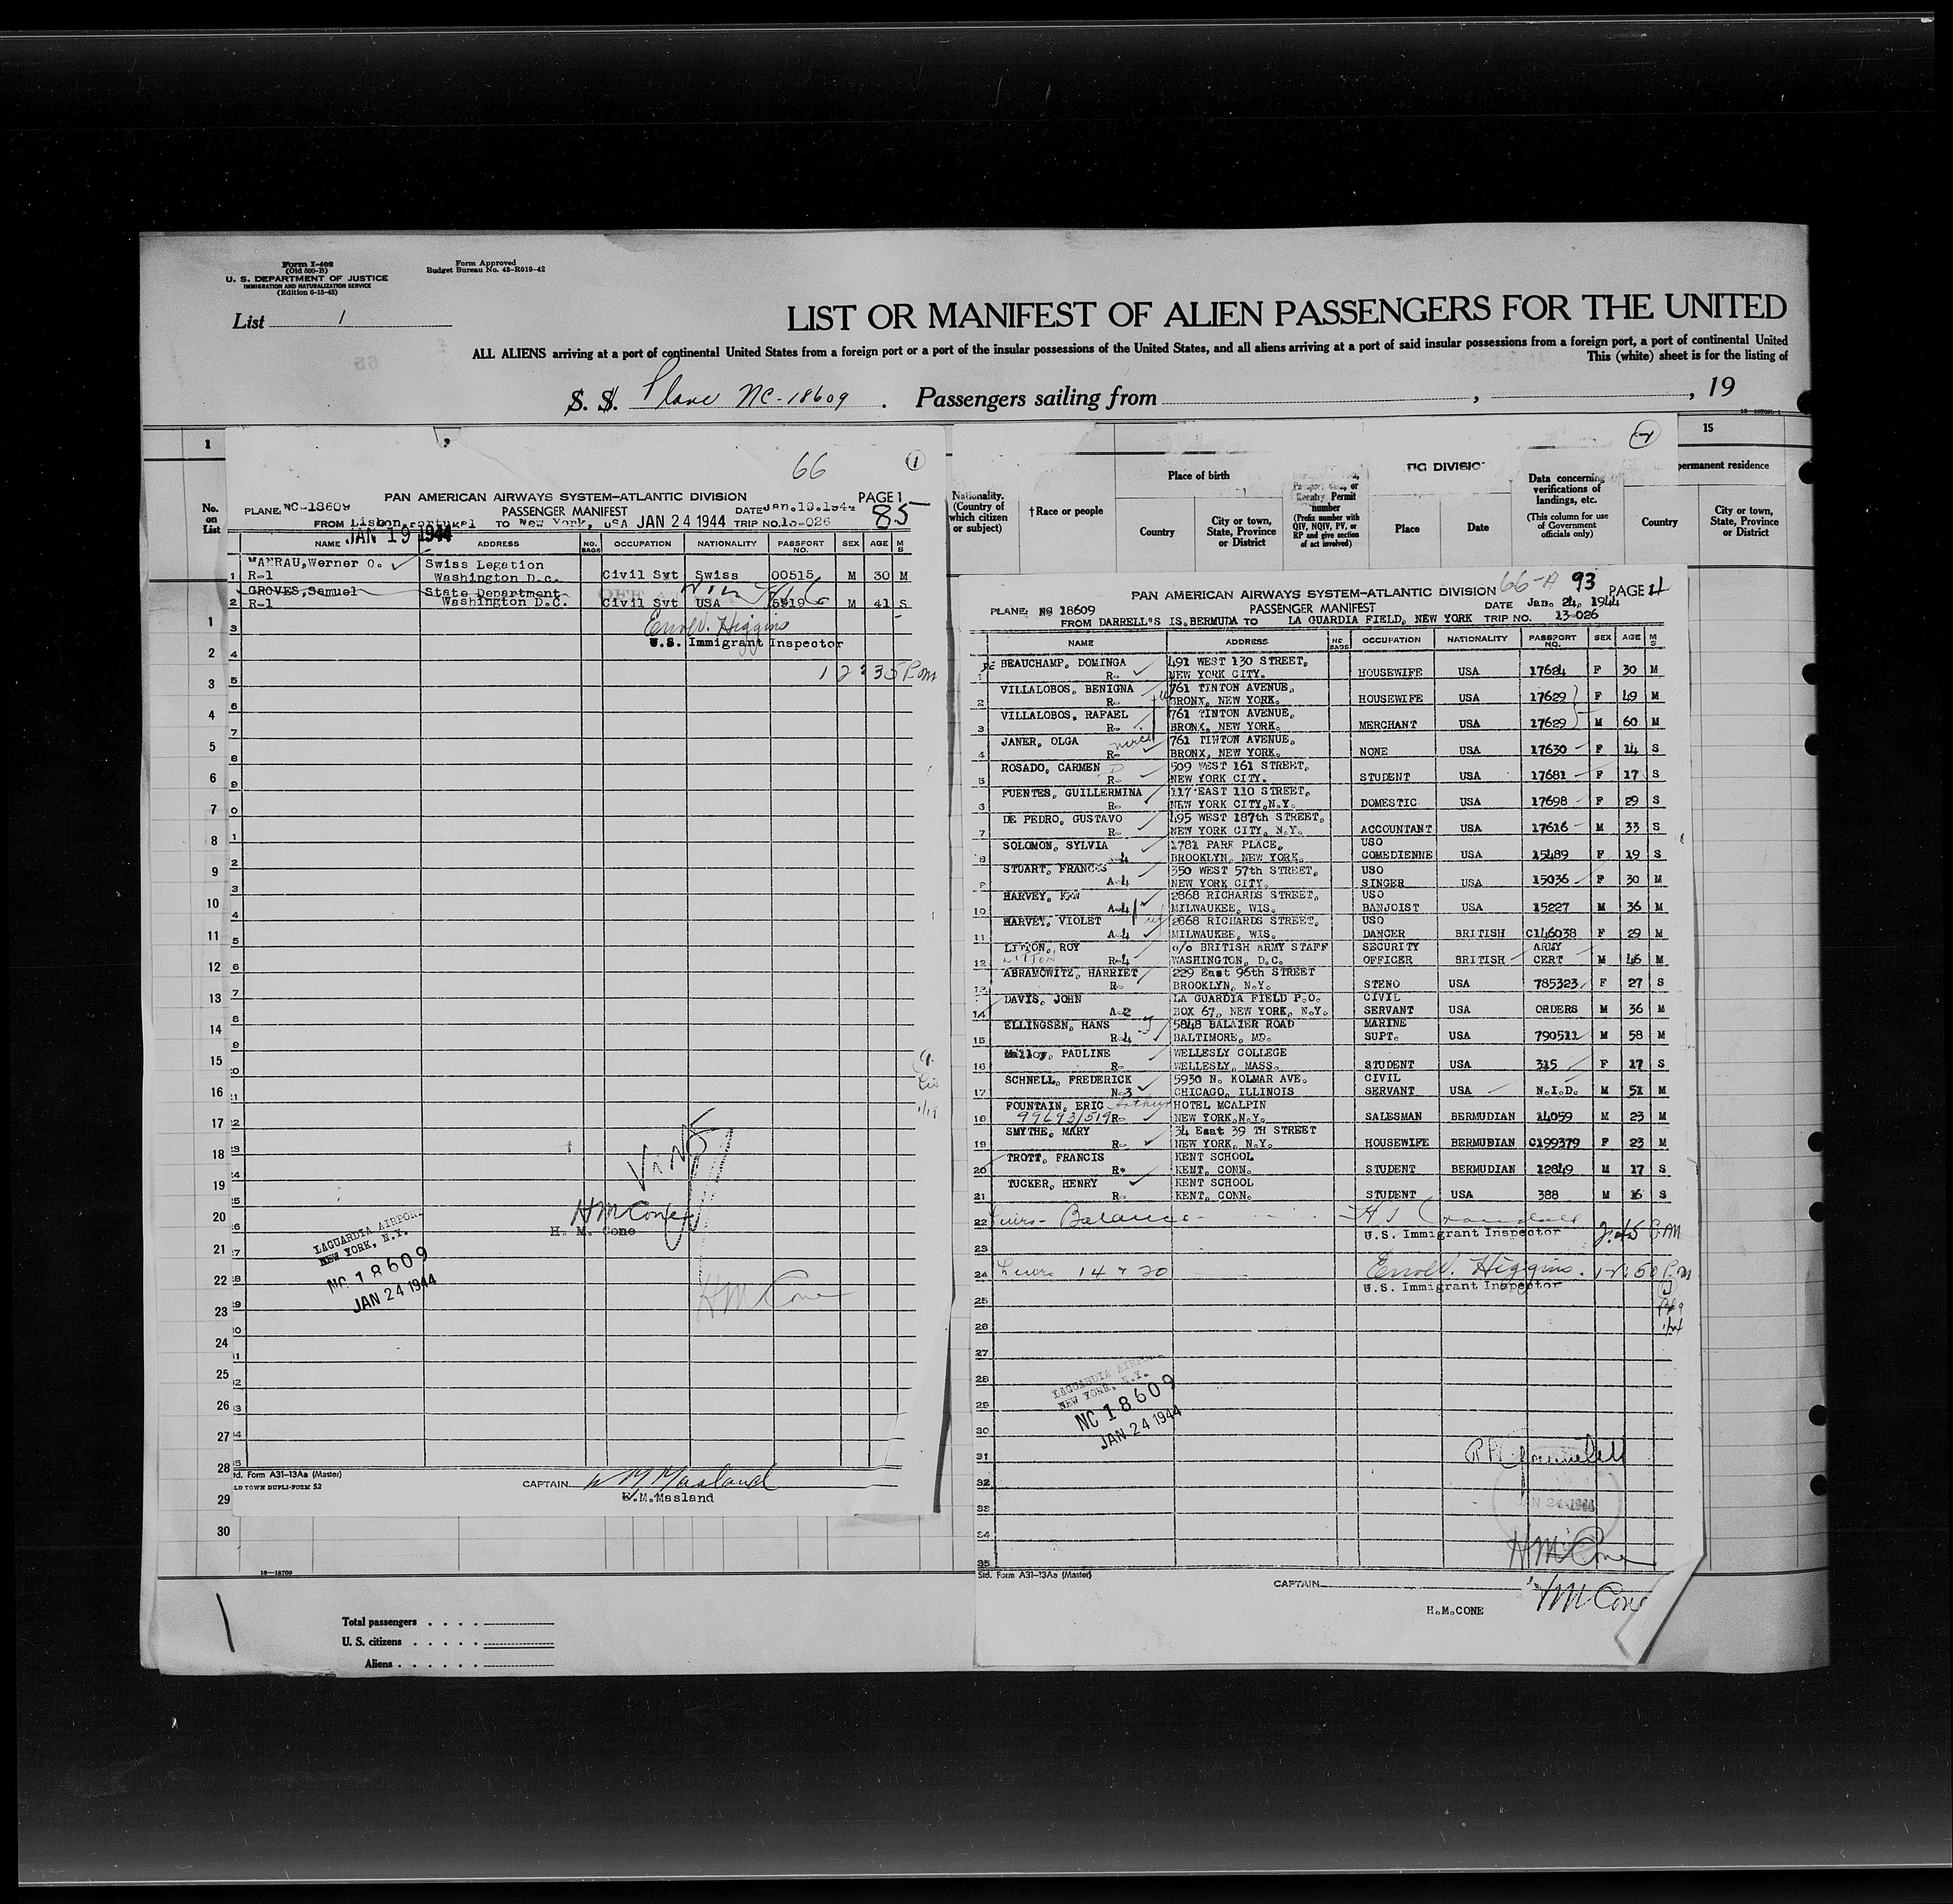 Form I-402
(Old 500-B)
U. S. DEPARTMENT OF JUSTICE
IMMIGRATION AND NATURALIZATION SERVICE
(Edition 6-15-43)
Form Approved
Budget Bureau No. 43-R019-42
List 1
LIST OR MANIFEST OF ALIEN PASSENGERS FOR THE UNITED
ALL ALIENS arriving at a port of continental United States from a foreign port or a port of the insular possessions of the United States, and all aliens arriving at a port of said insular possessions from a foreign port, a port of continental United
This (white) sheet is for the listing of
S. S. Plane NC-18609 . Passengers sailing from , , 19
1
No. on List
66 1
PAN AMERICAN AIRWAYS SYSTEM-ATLANTIC DIVISION PAGE 1
PLANE NC-18609 PASSENGER MANIFEST DATE Jan.19.1944 85
FROM Lisbon, Portugal TO New York, USA JAN 24 1944 TRIP NO. 13-026
JAN 19 1944
NAME ADDRESS NO. BAGS OCCUPATION NATIONALITY PASSPORT NO. SEX AGE M S
Werner O. Swiss Legation
1 R-1 Washington D.C. Civil Svt Swiss 00515 M 30 M
GROVES, Samuel State Department
2 R-1 Washington D.C. Civil Svt USA 6919 M 41 S
Errol V. Higgins
U.S. Immigrant Inspector
12:35 P.m
H M Cone
H. M. Cone
H M Cone
LAGUARDIA AIRPORT
NEW YORK, N.Y.
NC 18609
JAN 24 1944
Std. Form A31-13Aa (Master)
OLD TOWN DUPLI-FORM 52
CAPTAIN W M Masland
W.M.Masland
1
2
3
4
5
6
7
8
9
10
11
12
13
14
15
16
17
18
19
20
21
22
23
24
25
26
27
28
29
30
16-18709
Total passengers
U. S. citizens
Aliens
15
permanent residence
Country
City or town, State, Province or District
Nationality. (Country of which citizen or subject)
†Race or people
Place of birth
Country
City or town, State, Province or District
number
(Prefix number with QIV, NQIV, PV, or RP and give section of act involved)
Place
Date
Data concerning verifications of landings, etc.
(This column for use of Government officials only)
PAN AMERICAN AIRWAYS SYSTEM-ATLANTIC DIVISION 66-A 93 PAGE 4
PLANE: NC 18609 PASSENGER MANIFEST DATE Jan. 24, 1944
FROM DARRELL'S IS.BERMUDA TO LA GUARDIA FIELD, NEW YORK TRIP NO. 13-026
NAME ADDRESS NO. BAGS OCCUPATION NATIONALITY PASSPORT NO. SEX AGE M S
DE BEAUCHAMP, DOMINGA 491 WEST 130 STREET,
1 R- NEW YORK CITY. HOUSEWIFE USA 17624 F 30 M
VILLALOBOS, BENIGNA 761 TINTON AVENUE,
2 R- BRONX, NEW YORK. HOUSEWIFE USA 17629 F 49 M
VILLALOBOS, RAFAEL 761 TINTON AVENUE,
3 R- BRONX, NEW YORK. MERCHANT USA 17629 M 60 M
JANER, OLGA niece 761 TINTON AVENUE,
4 R- BRONX, NEW YORK. NONE USA 17630 F 14 S
ROSADO, CARMEN D 509 WEST 161 STREET,
5 R- NEW YORK CITY. STUDENT USA 17681 F 17 S
FUENTES, GUILLERMINA 117 EAST 110 STREET,
6 R- NEW YORK CITY,N.Y. DOMESTIC USA 17698 F 29 S
DE PEDRO, GUSTAVO 495 WEST 187th STREET,
7 R- NEW YORK CITY, N.Y. ACCOUNTANT USA 17616 M 33 S
SOLOMON, SYLVIA 1781 PARK PLACE, USO
8 A-4 BROOKLYN, NEW YORK. COMEDIENNE USA 15489 F 19 S
STUART, FRANCES 350 WEST 57th STREET, USO
9 A-4 NEW YORK CITY. SINGER USA 15036 F 30 M
HARVEY, KEN 2868 RICHARDS STREET, USO
10 A-4 MILWAUKEE, WIS. BANJOIST USA 15227 M 36 M
HARVEY, VIOLET 2868 RICHARDS STREET, USO
11 A-4 MILWAUKEE, WIS. DANCER BRITISH C146038 F 29 M
LITTON, ROY c/o BRITISH ARMY STAFF SECURITY ARMY
12 LITTON R-4 WASHINGTON, D.C. OFFICER BRITISH CERT M 46 M
ABRAMOWITZ, HARRIET 229 East 96th STREET
13 R- BROOKLYN, N.Y. STENO USA 785323 F 27 S
DAVIS, JOHN LA GUARDIA FIELD P.O. CIVIL
14 A-2 BOX 67, NEW YORK, N.Y. SERVANT USA ORDERS M 36 M
ELLINGSEN, HANS J 5848 BALATER ROAD MARINE
15 R-4 BALTIMORE, MD. SUPT. USA 790511 M 58 M
Malloy, PAULINE WELLESLY COLLEGE
16 R- WELLESLY, MASS. STUDENT USA 315 F 17 S
SCHNELL, FREDERICK 5930 N. KOLMAR AVE. CIVIL
17 N-3 CHICAGO, ILLINOIS SERVANT USA N.I.D. M 51 M
FOUNTAIN, ERIC Arthur HOTEL MCALPIN
18 99693/519 R- NEW YORK,N.Y. SALESMAN BERMUDIAN 14059 M 23 M
SMYTHE, MARY 34 East 39 TH STREET
19 R- NEW YORK, N.Y. HOUSEWIFE BERMUDIAN C199379 F 23 M
TROTT, FRANCIS KENT SCHOOL
20 R- KENT, CONN. STUDENT BERMUDIAN 12849 M 17 S
TUCKER, HENRY KENT SCHOOL
21 R- KENT, CONN. STUDENT USA 388 M 16 S
22 Balance
U.S. Immigrant Inspector 2:45 P.M
23
24 Lines 14 & 20 Errol V. Higgins. 12:50 P.m
U.S. Immigrant Inspector
25
26
27
28
29
30
31
32
33
34
35
LAGUARDIA AIRPORT
NEW YORK, N.Y.
NC 18609
JAN 24 1944
JAN 24 1944
H M Cone
Std. Form A31-13Aa (Master)
CAPTAIN H M Cone
H.M.CONE